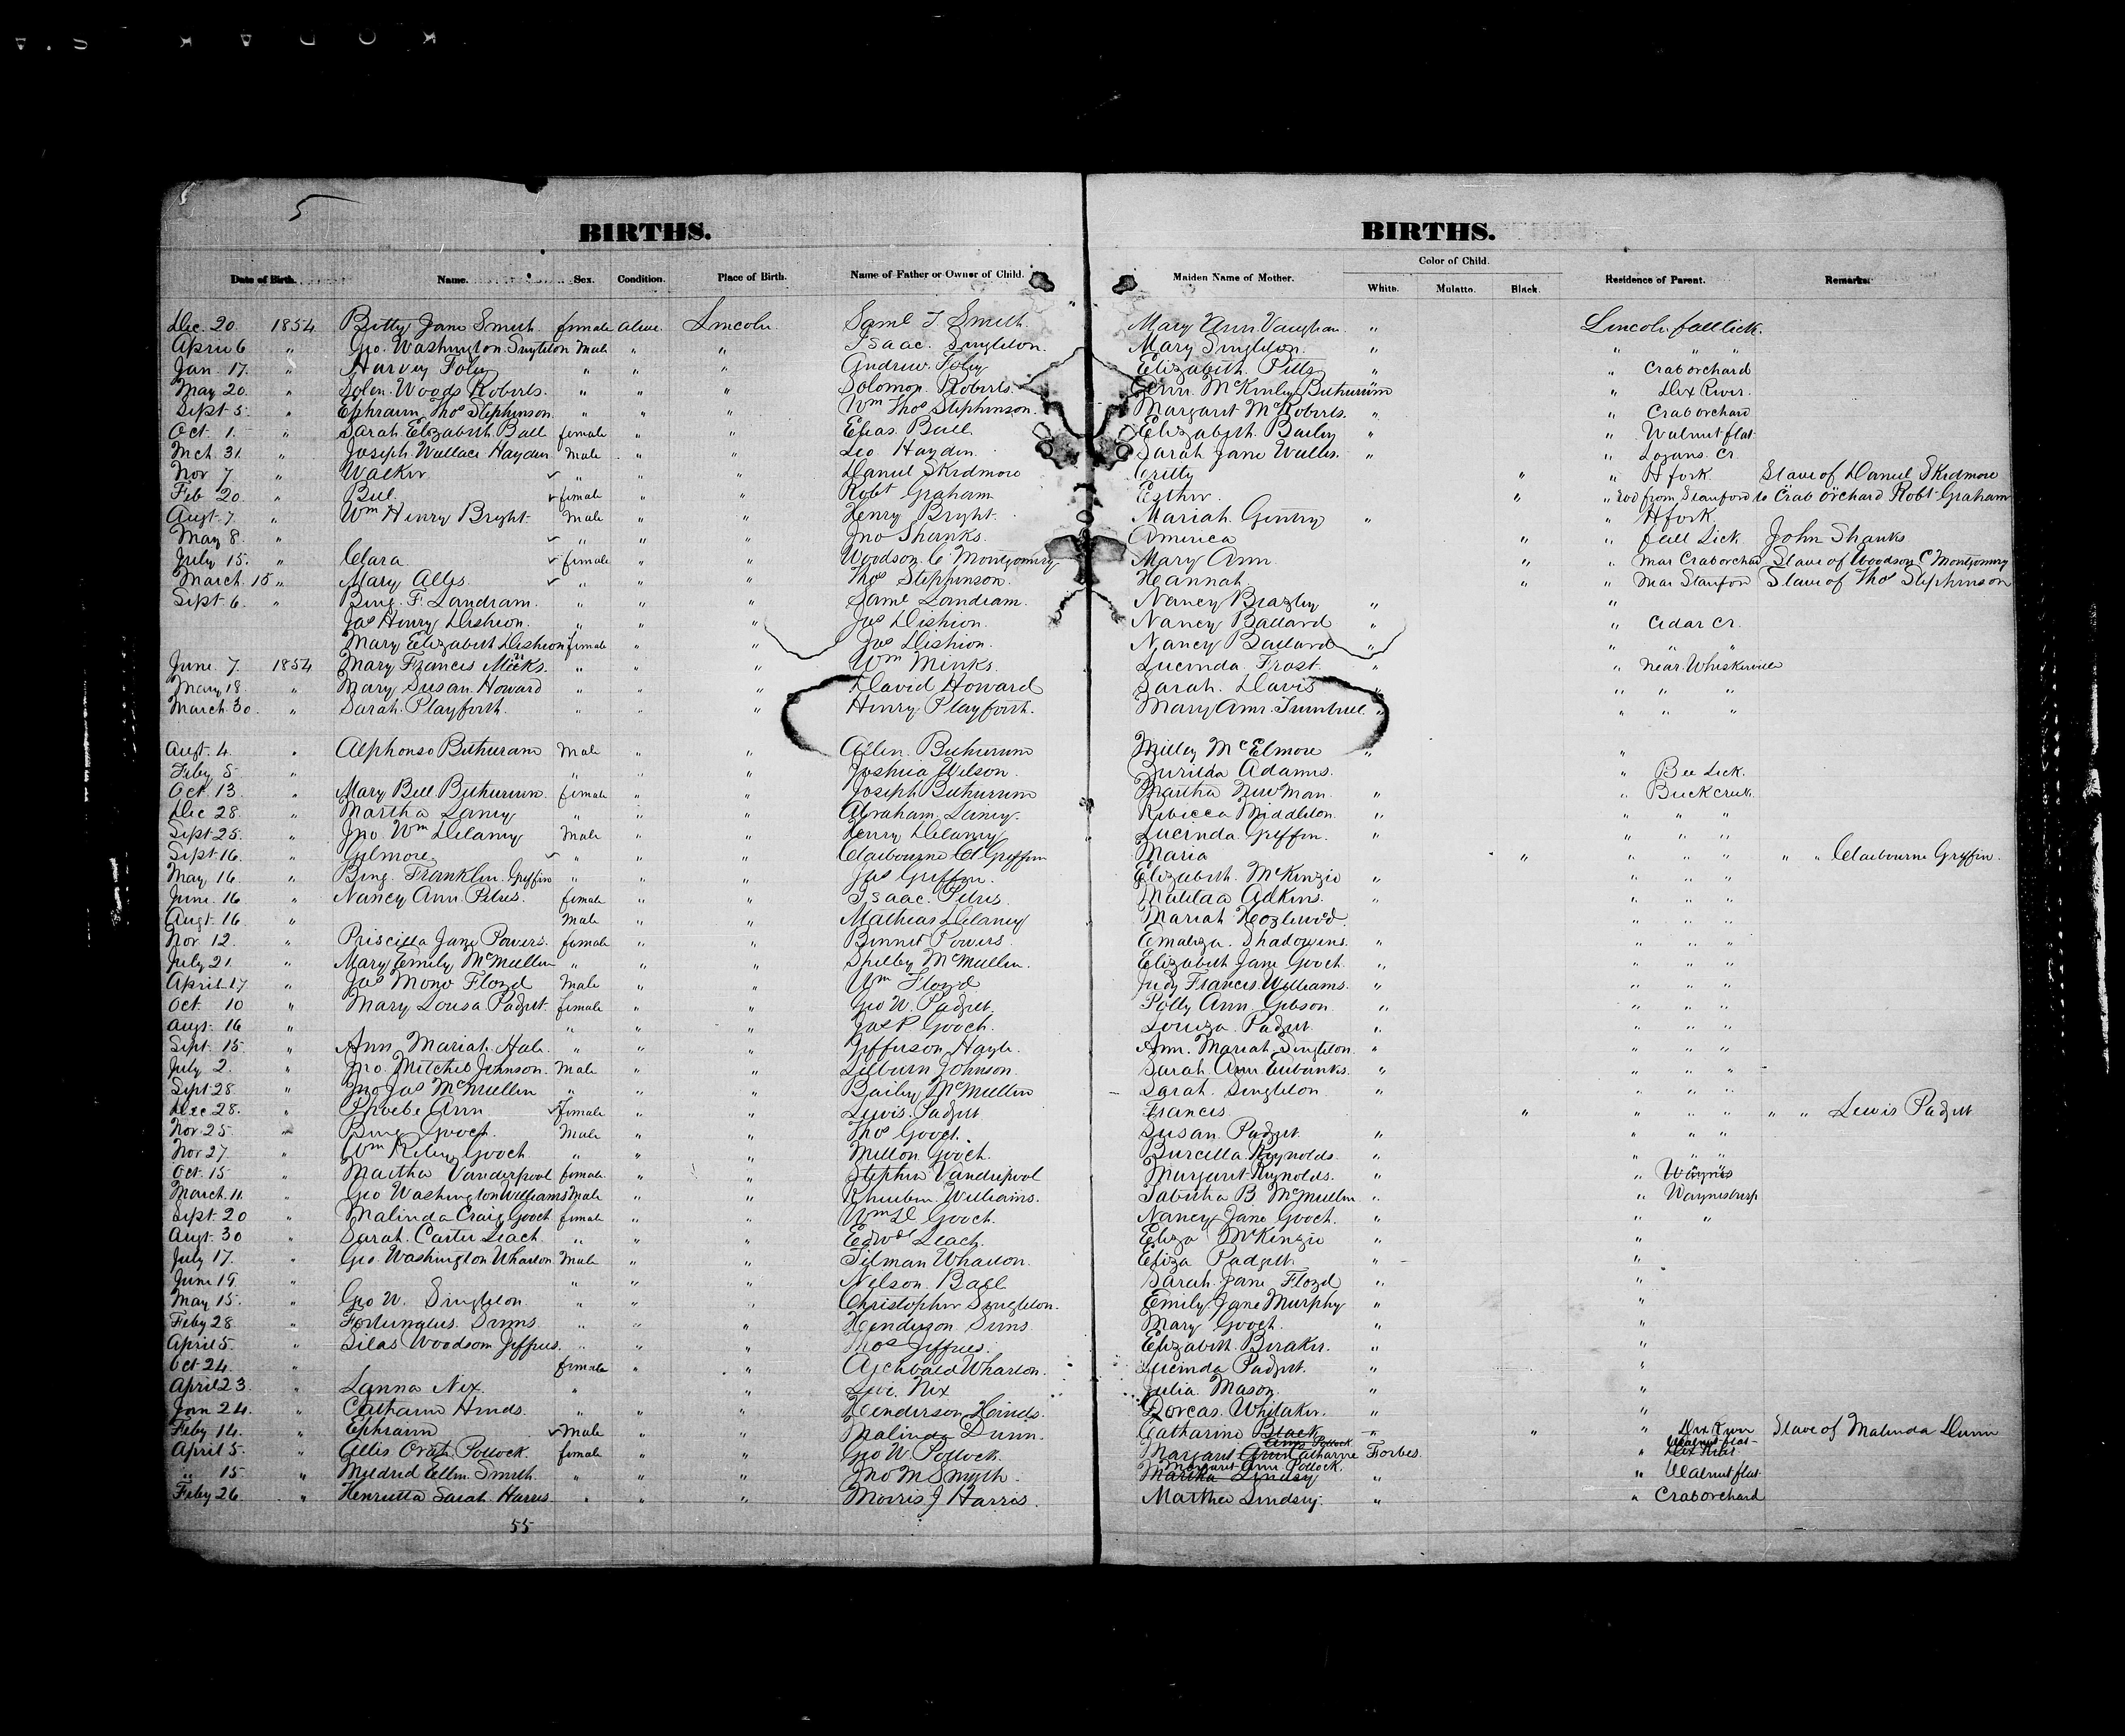 5
BIRTHS. BIRTHS.
Date of Birth. Name. Sex. Condition. Place of Birth. Name of Father or Owner of Child. Maiden Name of Mother. Color of Child. White. Mulatto. Black. Residence of Parent. Remarks.
Dec. 20. 1854 Betty Jane Smith. female alive. Lincoln. Saml T. Smith. Mary Ann Vaughan. " Lincoln fall lick.
April 6 " Geo. Washington Singleton Male " " Isaac. Singleton. Mary Singleton. " " " "
Jan. 17. " Harvey Foley " " " Andrew Foley Elizabeth Pitts " " Craborchard
May 20. " Solen. Woods Roberts. " " " Solomon Roberts. McKinley Buthurum " Dix River.
Sept 5. " Ephraim Thos Stephinson. " " " Wm Thos Stephinson. Margaret McRoberts. " " Craborchard
Oct. 1. " Sarah Elizabeth Ball female " " Elias. Ball. Elizabeth. Bailey " " Walnut flat
Mch 31. " Joseph Wallace Hayden Male " " Leo Hayden. Sarah Jane Wallis. " " Logans. Cr.
Nov 7 " Walker ✓ " " " Daniel Skidmore Critty " " H fork. Slave of Daniel Skidmore
Feb 20 " Bell. ✓ female " " Robt Graham Esther. " " rod from Stanford to Crab orchard Robt Graham
Augt. 7. " Wm Henry Bright Male " " Henry Bright. Mariah. Gentry " " H fork
May 8. " ✓ " " " Jno Shanks. America " " fall Lick John Shanks
July 15. " Clara ✓ female " " Woodson C Montgomery Mary Ann " " near Craborchard Slave of Woodson C Montgomery
March. 15 " Mary Alles. ✓ " " " Thos Stephinson. Hannah. " " near Stanford Slave of Thos Stephinson
Sept. 6. " Benj. F. Landram. " " " Saml Landram. Nancy Beazley " "
Jas Henry Dishion. " " " Jas Dishion. Nancy Ballard " " Cedar Cr.
Mary Elizabeth Dishion female " Jas Dishion. Nancy Ballard " " " "
June. 7. 1854 Mary Francis Micks. " " " Wm Minks. Lucinda Frost. " " near Whiskerville
May 18. " Mary Susan. Howard " " " David Howard Sarah. Davis " " " "
March 30. " Sarah. Playforth. " " " Henry. Playforth. Mary Ann. Turnbull. " " " "
Augt. 4. " Alphonso Buthuram Male " " Allen. Buthurum Milley McElmore " "
Feby 5. " " " " Joshua Wilson. Zurilda Adams. " Bee Lick.
Oct. 13. " Mary Bell Buthurum. female " " Joseph Buthurum Martha Newman. " " Buck creek
Dec 28. " Martha Laney " " " Abraham. Lainey. Rebecca Middleton. " " " "
Sept 25. " Jno. Wm Delaney Male " " Henry Delaney Lucinda Griffin. " " " "
Sept 16. " Gilmore. ✓ " " " Claibourne Griffin Maria " " " " " " Claibourne Griffin.
May 16. " Benj. Franklin. Griffin " " " Jas Griffin. Elizabeth. McKenzie " " " "
June. 16 " Nancy Ann. Petres. female " " Isaac. Petres. Matilda Adkins. " " " "
Augt. 16 " Male " " Mathias Delaney Mariah Hozlewod. " " "
Nov 12. " Priscilla Jane Powers. female " " Bennet Powers. Emaliza. Shadowins. " " " "
July 21. " Mary Emily McMullin " " " Shelby McMullin. Elizabeth Jane Gooch. " " " "
April 17 " Jas Mono Floyd Male " " Wm Floyd Judy Francis Williams. " " " "
Oct. 10 " Mary Lousa Padget. female " " Geo W. Padgett. Polly Ann Gibson. " " " "
Augt. 16 " " " Jas P Gooch. Louiza. Padget " " " "
Sept. 15. " Ann Mariah. Hale. " " " Jefferson Hayle. Ann. Mariah Singleton. " " " "
July 2. " Jno. Mitchel Johnson. Male " " Lilburn Johnson. Sarah. Ann Eubanks. " " " "
Sept 28 " Jno Jas McMullin " " " Bailey McMullin Sarah Singleton " " " "
Dec. 28. " Phoebe Ann ✓ female " " Lewis. Padgett Francis. " " " " " " Lewis Padgett
Nov 25. " Benj Gooch. Male " " Thos Gooch. Susan. Padget. " " " "
Nov 27 " Wm Riley Gooch " " " Milton Gooch. Burcilla Reynolds. " " " "
Oct. 15 " Martha Vanderpool female. " " Stephen Vanderpool Margaret Reynolds. " " Waynes
March. 11. " Geo Washington Williams Male " " Rheuben Williams. Tabitha B McMullin " " Waynesburg
Sept. 20 " Malinda Craig Gooch female " " Wm D Gooch. Nancy Jane Gooch. " " "
Augt. 30 " Sarah. Carter Leach. " " " Edwd Leach. Eliza McKenzie " "
July 17. " Geo. Washington Wharton Male " " Tilman Wharton. Eliza Padgett. " "
June 19. " " " " Nelson. Ball Sarah. Jane Floyd " "
May 15. " Geo W. Singleton. " " " Christopher Singleton. Emily Jane Murphy " "
Feby 28 " Fortunatus. Sims. " " " Henderson Sims Mary Gooch. " "
April 5. " Silas Woodson Jeffries. " " " Thos Jeffries. Elizabeth. Beraker. " "
Oct 24. " female " " Archbald Wharton. Lucinda Padgett. " "
April 23. " Lanna Nix. " " Levi. Nix Julia. Mason. " "
Jan 24. " Catharine Hinds. " " " Henderson Hinds. Dorcas. Whitaker. " "
Feby 14. " Ephraim ✓ Male " " Malinda Dunn. Catharine Black " " Dix River Slave of Malinda Dunn
April 5. " Allis Pollock. female " " Geo W. Pollock. Margaret Ann Catharine Forbes. " Walnut flat
" 15 " Mildred Ellen Smith. " " " Jno M Smith. Margaret Ann Pollock. Martha Lindsey " " Walnut flat
Feby 26 " Henrietta Sarah Harris " " " Morris J Harris. Martha Lindsey. " " Craborchard
55